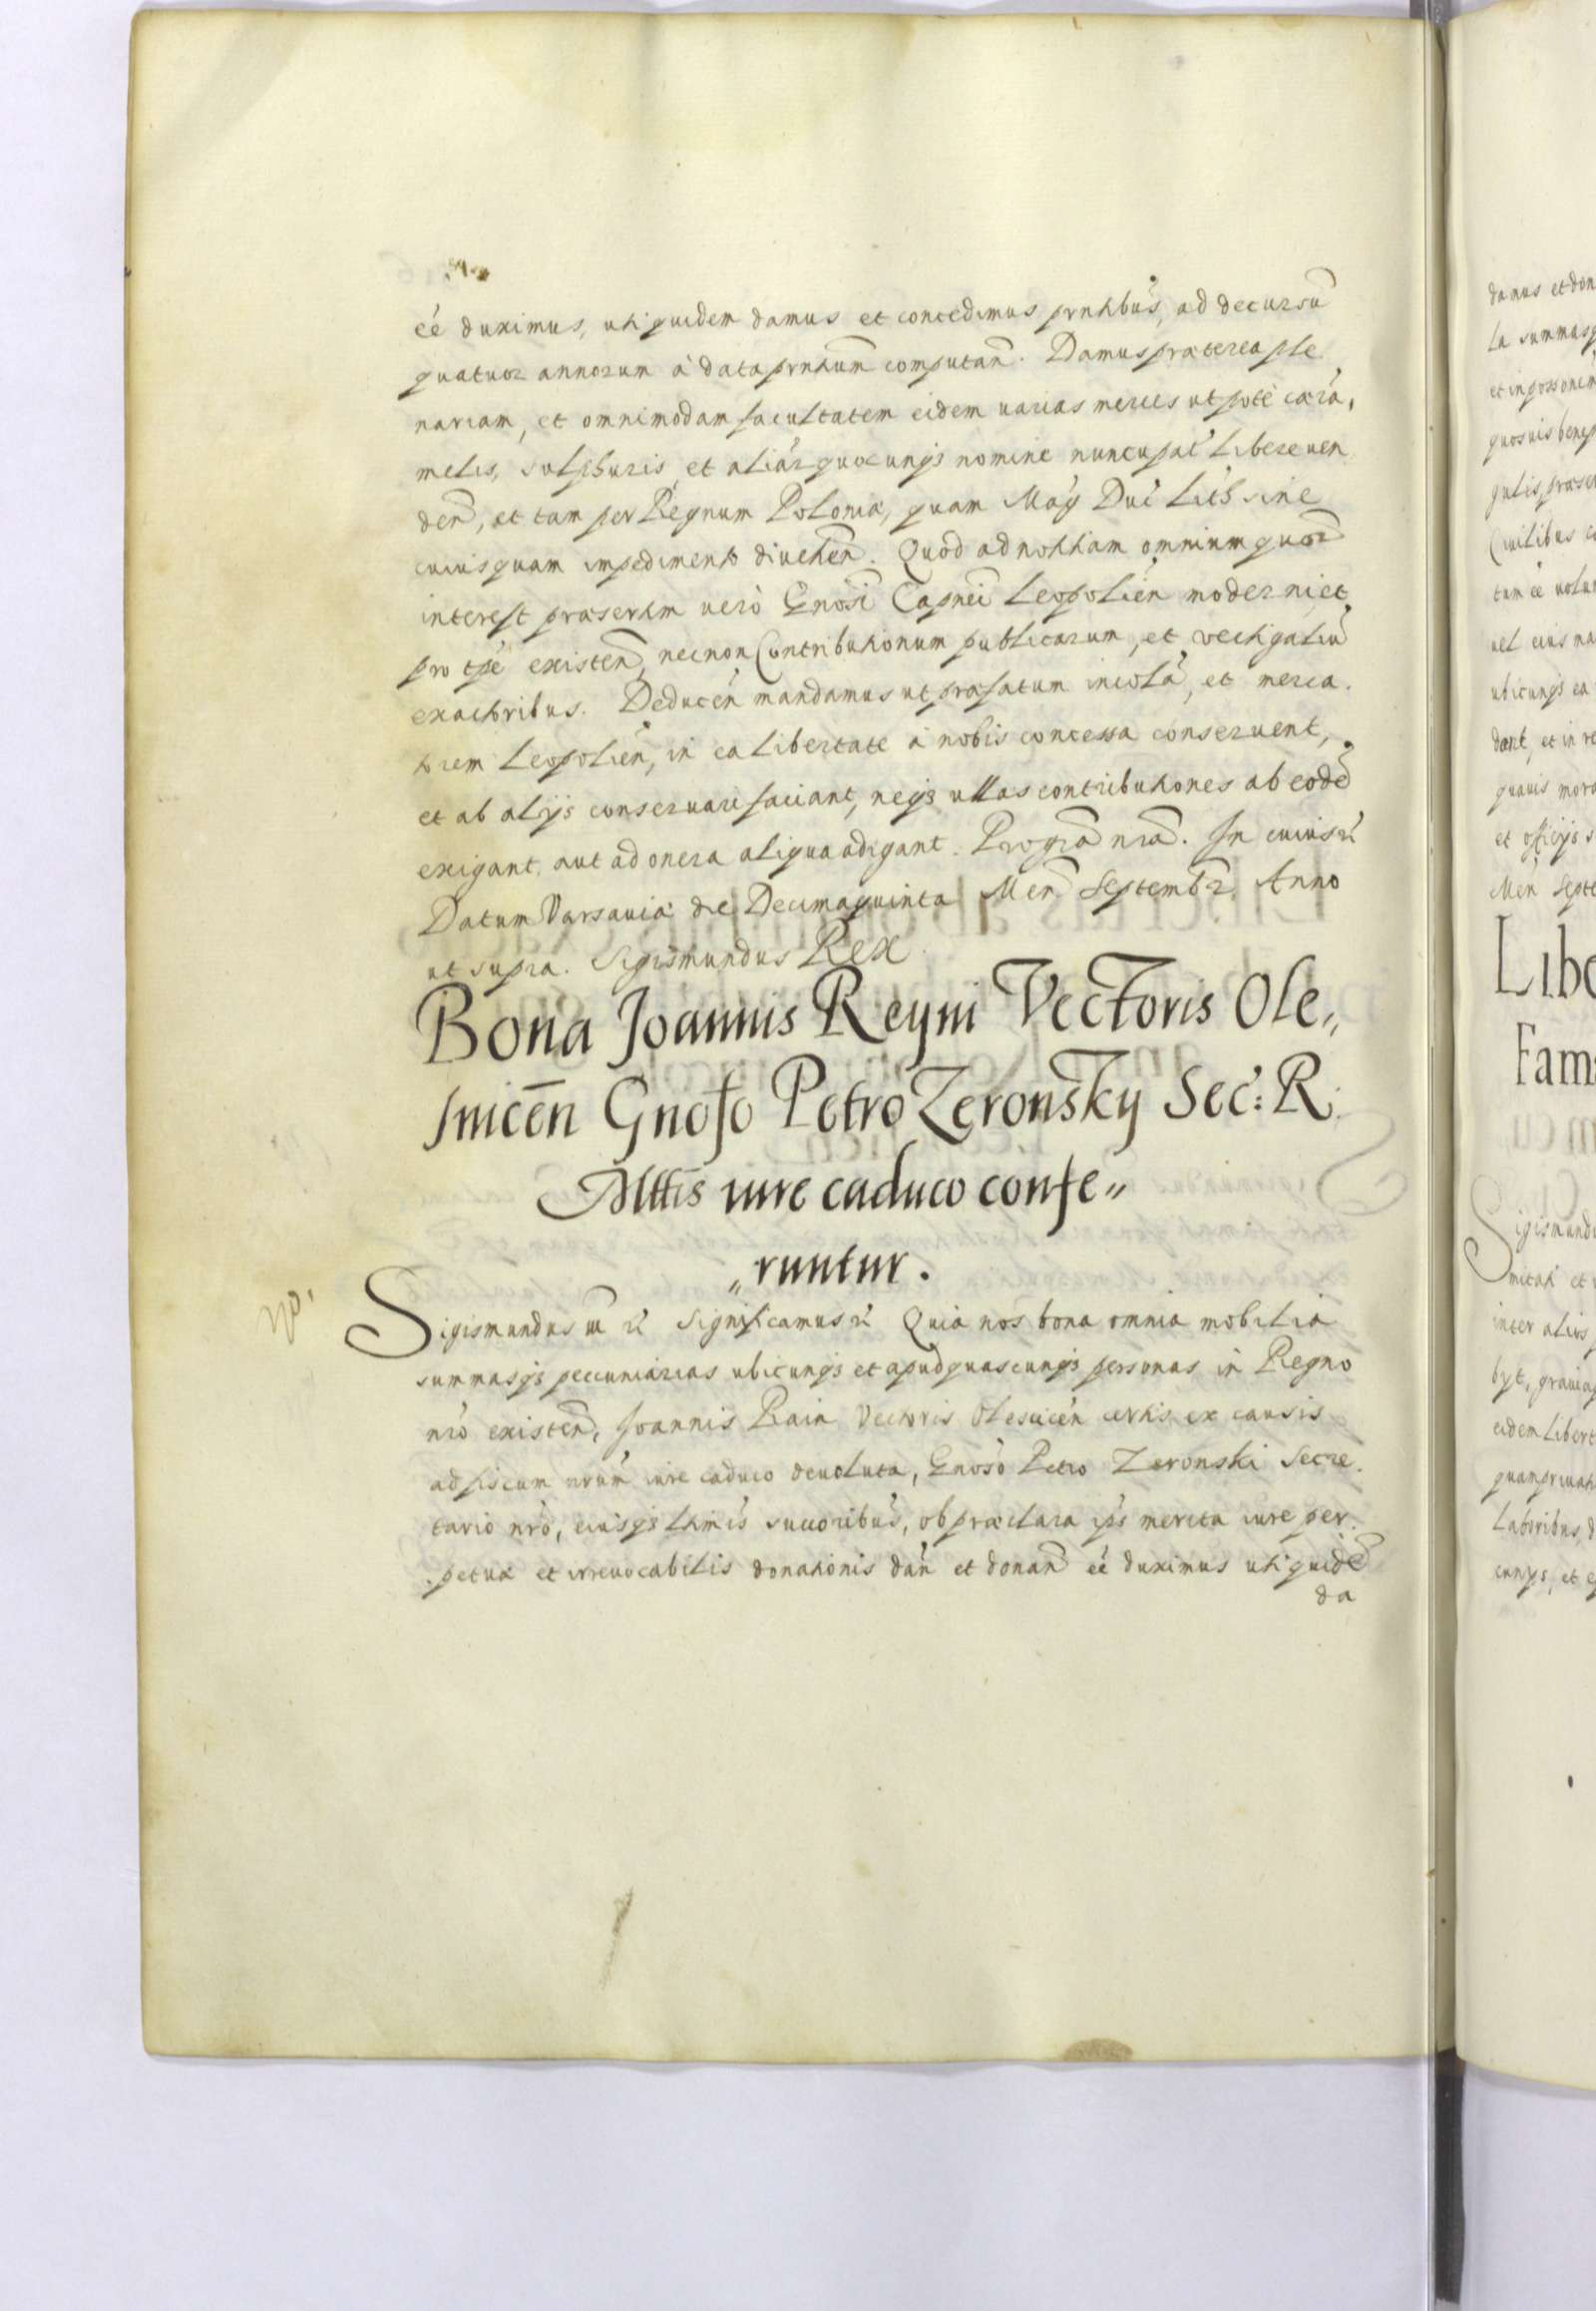 eé duximus, uti quidem damus et concedimus pnntibus, ad decursū
quatuor annorum à data pnntium computañ. Damus præterea ple
nariam, et omnimodam facultatem eidem uarias merces ut pote cara,
melis, sulphuris et aliar quocunq; nomine nuncupat libere uen
deñ, et tam per Regnum Poloniæ, quam Mag Duc Lith sine
cuiusquam impedimento diueheñ. Quod ad notitiam omnium quor
interest præsertim uerò Gnosi Capnei Leopolien moderni et
pro tpe existeñ, necnon Contributionum publicarum, et vectigaliū
exactoribus. Deduceñ mandamus ut præfatum incolã, et merca.
torem Leopolieñ, in ea libertate à nobis concessa conseruent,
et ab alijs conseruari faciant, neq; ullas contributiones ab eodē
exigant, aut ad onera aliqua adigant. Pro gra nra. In cuius rei
Datum Varsauiæ die Decimaquinta Meñ Septembr. Anno
ut supra. Sigismundus Rex
Bona Joannis Reyni Vectoris Ole,,
snicēn Gnoso Petro Zeronsky Sec: R.
Mttis iure caduco confe,,
,,runtur.
Sigismundus III rc Significamus rc Quia nos bona omnia mobilia
summasq; peccuniarias ubicunq; et apud quascunq; personas in Regno
nro existeñ, Joannis Rain Vectoris Olesnicen certis ex causis
ad fiscum nrum iure caduco deuoluta, Gnoso Petro Zeronski Secre.
tario nro, eiusq; ltimis succoribus, ob præclara ips merita iure per.
petuæ et irreuocabilis donationis dañ et donañ eé duximus uti quidē
da
damus et don
la summasq
quosuis benep
gulis, præser
Ciuilibus
tum eé uolu
uel eius na
ubicunq; ea
dant, et in re
quauis mora
et officijs s
Meñ Septe
Libe
Fam
Sigismund
mitah et
inter alios
byt, grauia
eidem libert
quam priuat
Laboribus, d
cunq;, et e